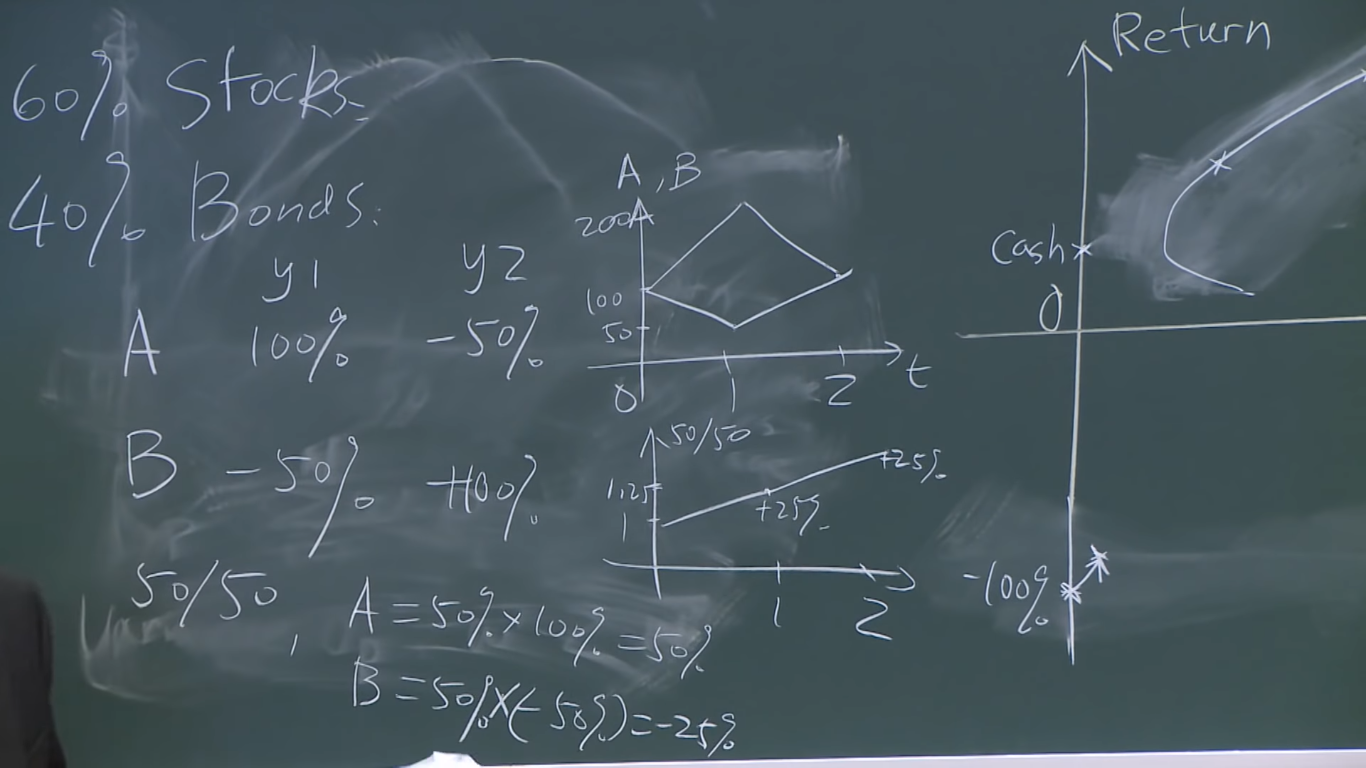 60% Stocks.
40% Bonds.
y1 y2
A 100% -50%
B -50% +100%
50/50, A = 50% × 100% = 50%
B = 50% × (-50%) = -25%
A, B
200
100
50
0 1 2 t
50/50
1.25
1
+25%
+25%
1 2
Return
Cash
0
-100%